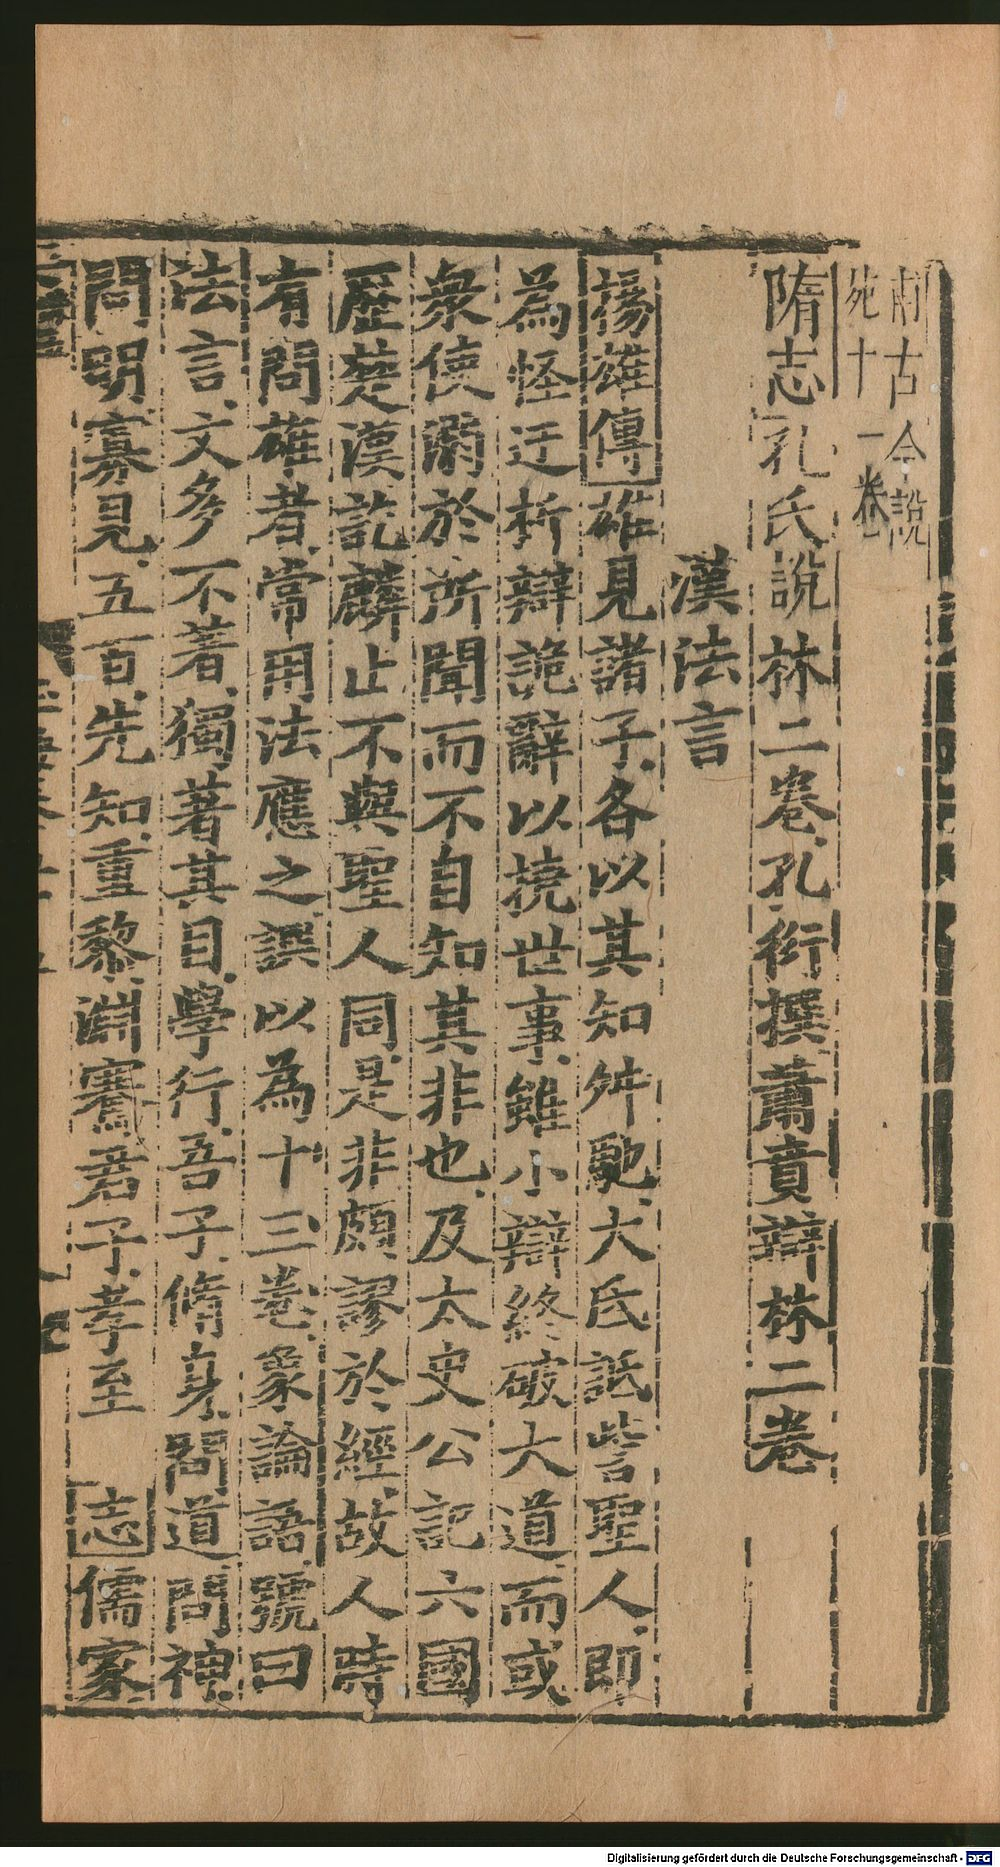 甫古今說
苑十一卷
隋志孔氏說林二卷孔衍撰蕭賁辯林二卷
漢法言
揚雄傳雄見諸子各以其知舛馳大氐詆訾聖人即
為怪迂析辯詭辭以撓世事雖小辯終破大道而或
衆使溺於所聞而不自知其非也及太史公記六國
歷楚漢訖麟止不與聖人同是非頗謬於經故人時
有問雄者常用法應之譔以為十三卷象論語號曰
法言文多不著獨著其目學行吾子脩身問道問神
問明寡見五百先知重黎淵騫君子孝至 志儒家
Digitalisierung gefördert durch die Deutsche Forschungsgemeinschaft - DFG